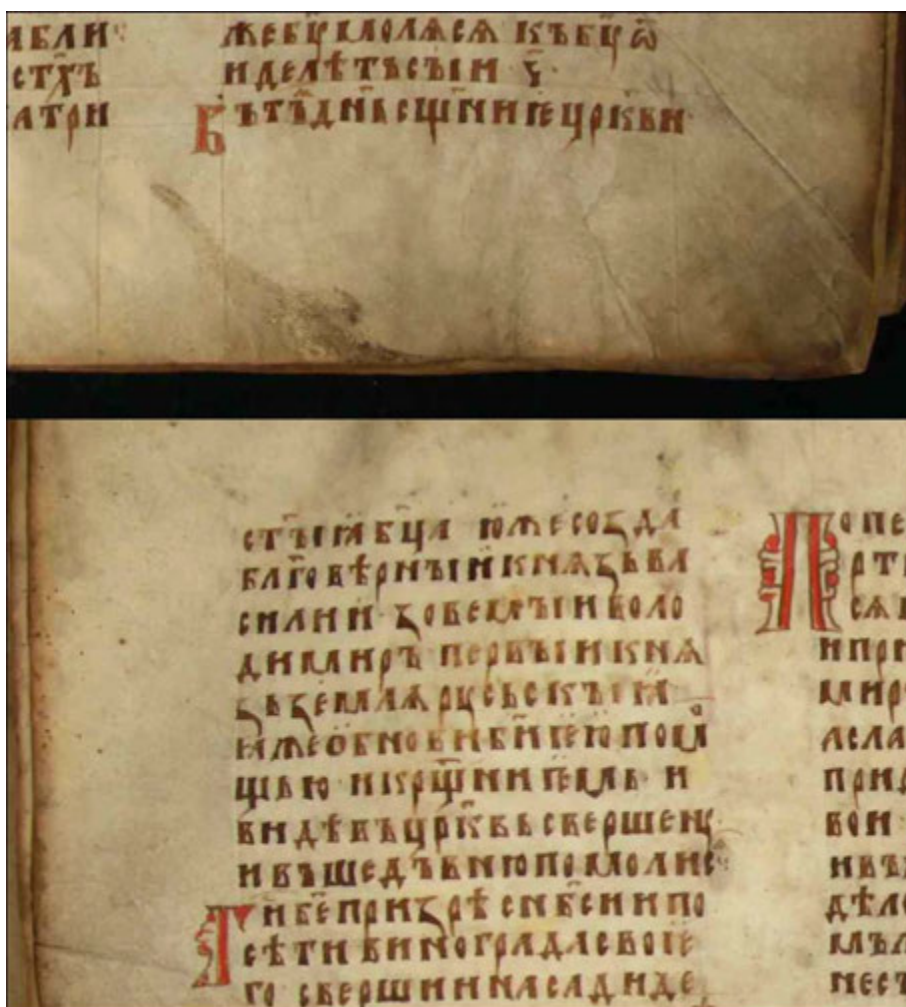 абли
стхъ
атри
же бц҃и молѧсѧ къ бц҃и ѿ
иде лѣтъ сыи ҂ѕ҃
Въ тъ д҃нь с҃щние ц҃ркви
ст҃ыꙗ б҃ца юже созда
благовѣрныи кнѧзь ва
силии зовемыи воло
димиръ первыи кнѧ
зь землѧ русьскыꙗ
ꙗже обнови б҃ниѥю помо
щью и кр҃щниѥмь и
видѣвъ ц҃рквь свершену
и въшедъ в ню помолисѧ
Ги б҃е призрѣ с нб҃си и по
сѣти виноград своѥ
го сверши и насади де
опе
рти
сѧ в
и при
мир
асла
при
вои
и въ
дѣло
мъл
нест